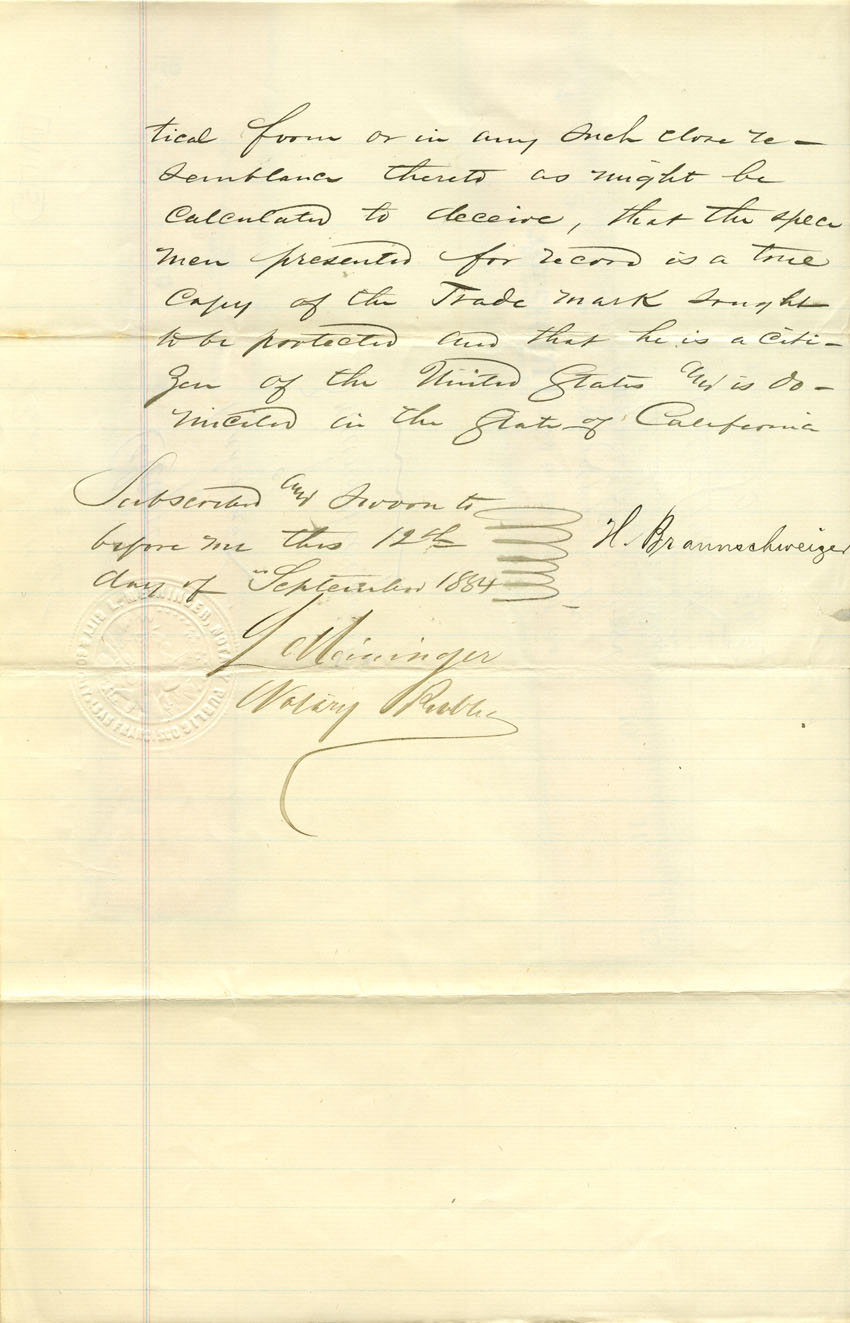 tical form or in any such close re-
semblance thereto as might be
calculated to deceive, that the speci
men presented for record is a true
copy of the Trade mark sought
to be protected and that he is a citi-
zen of the United States and is do-
miciled in the State of California
Subscribed and sworn to
before me this 12th
day of September 1884
H. Braunschweiger
L Meininger
Notary Public
L. MEININGER, NOTARY PUBLIC
SAN FRANCISCO